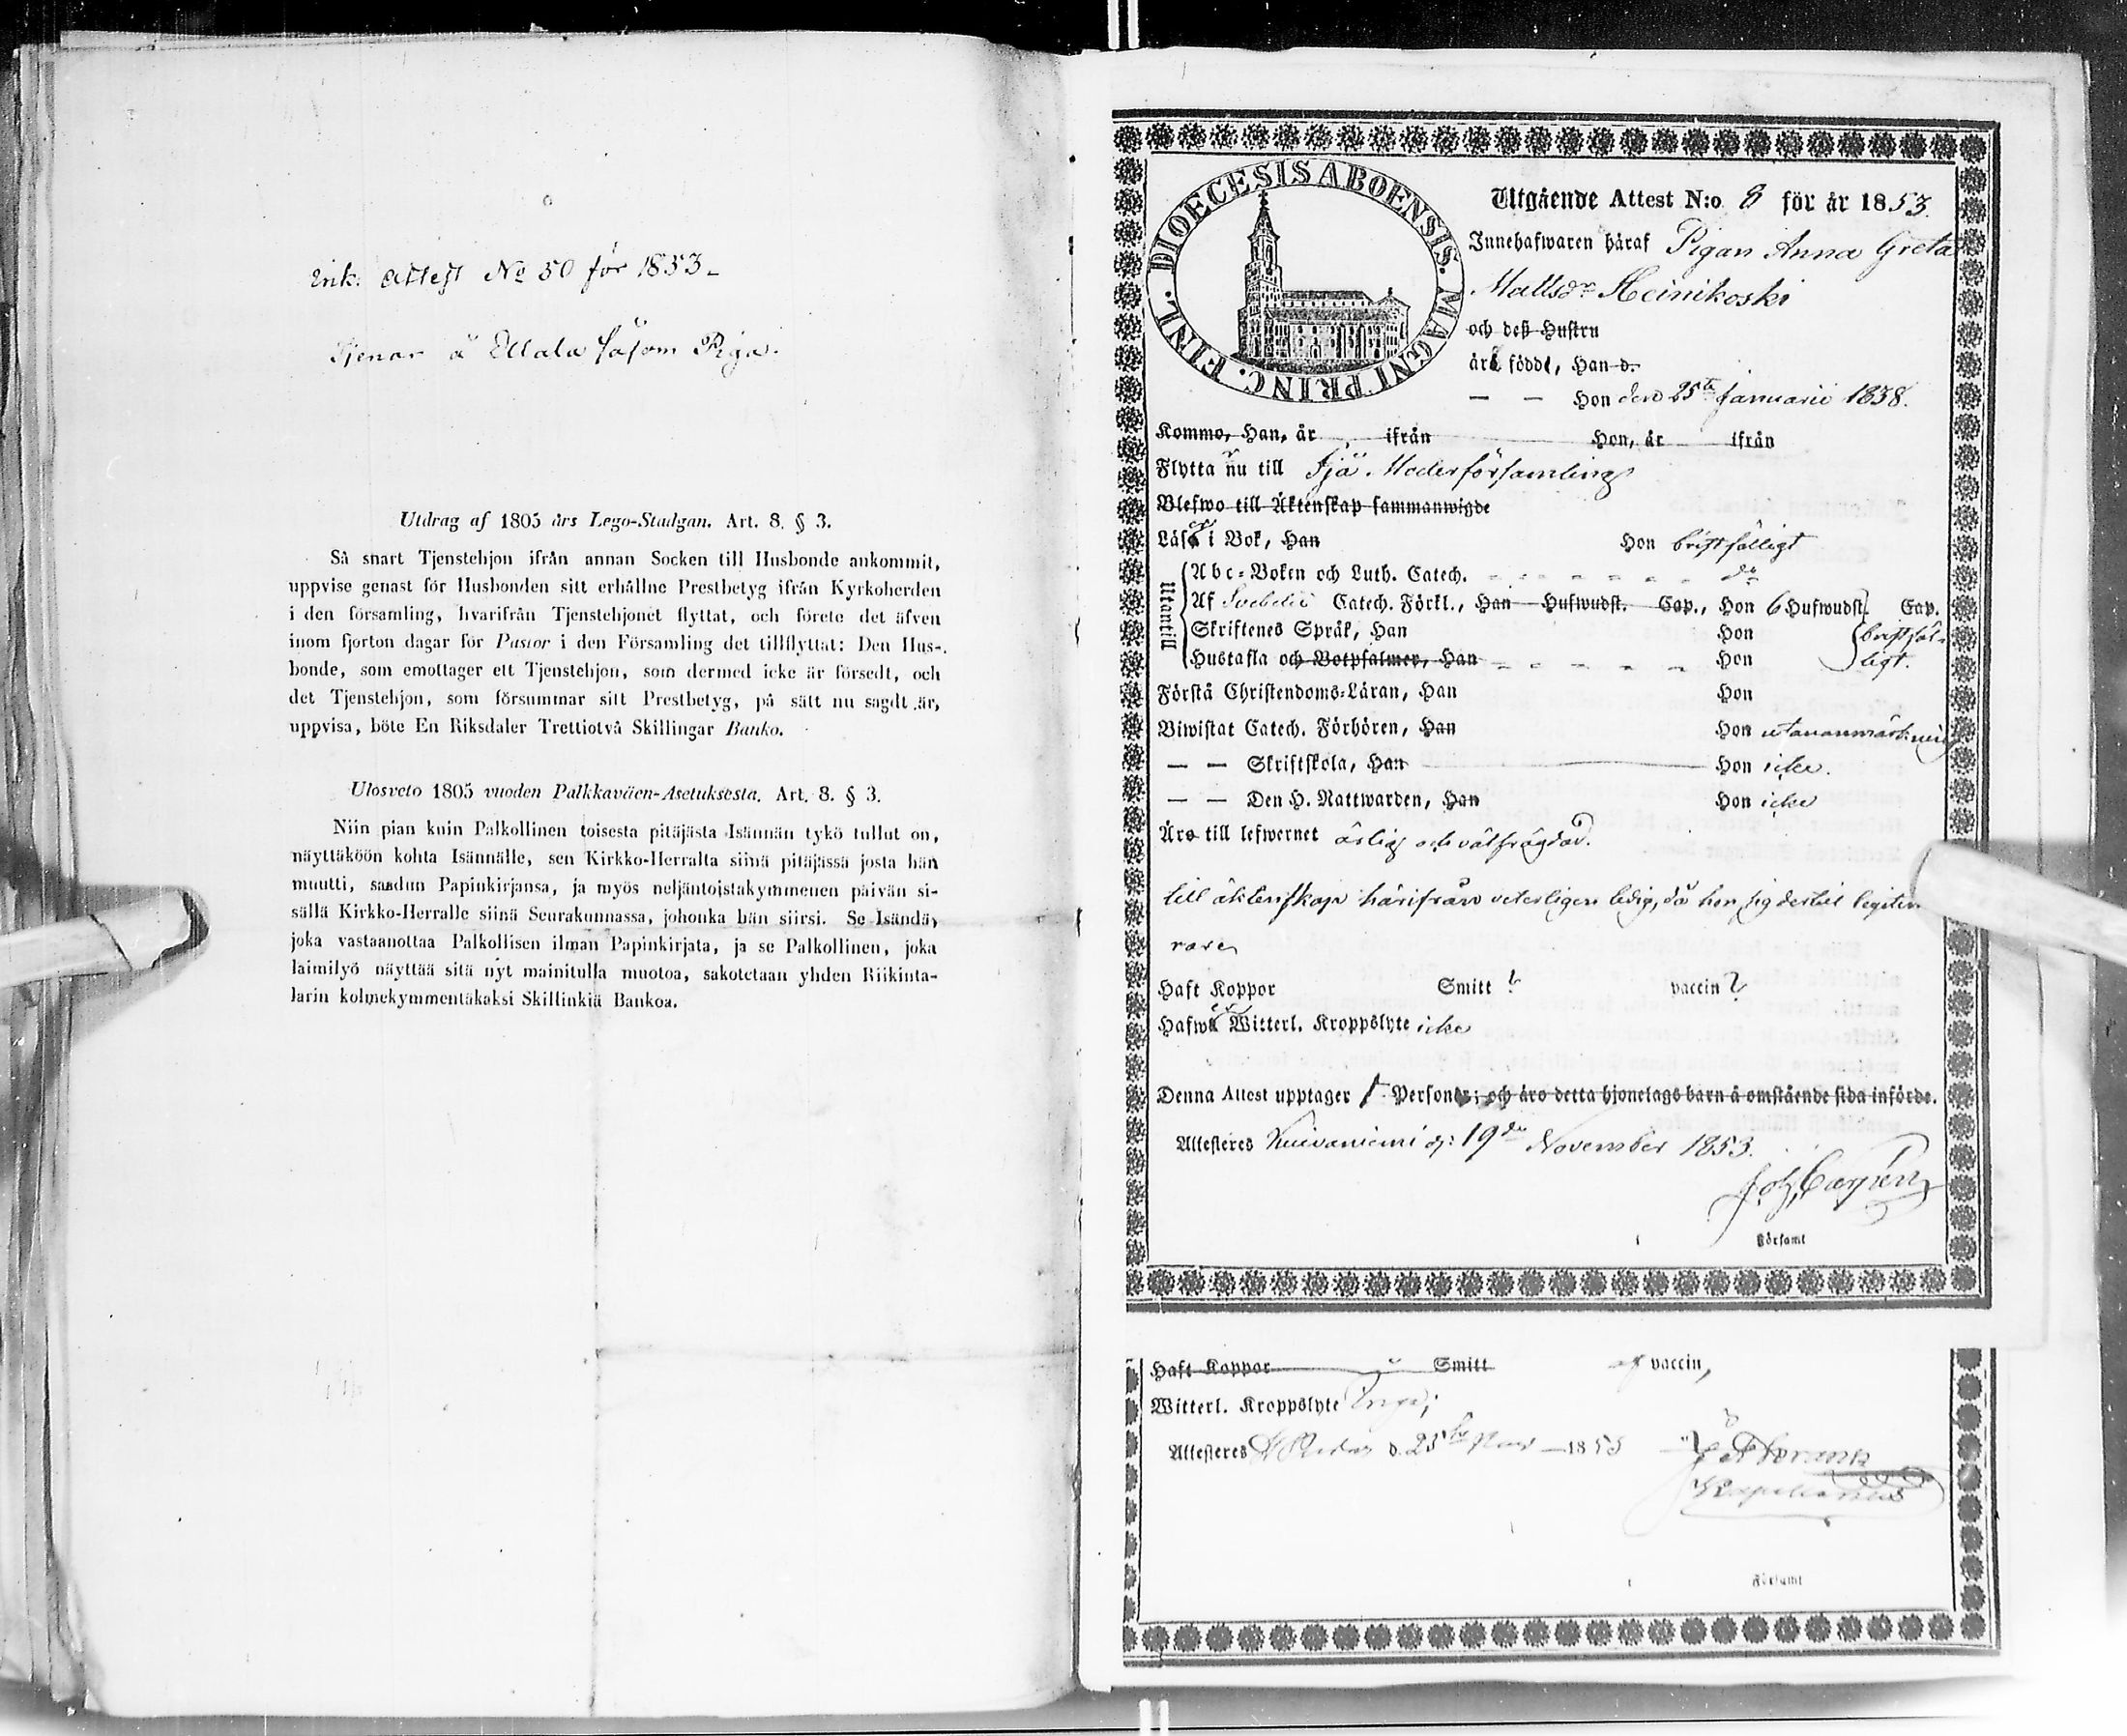 Ink: Attest No 50 för 1853.
Tjenar å Ellala såsom Piga.
Utdrag af 1805 års Lego-Stadgan. Art. 8. § 3.
Så snart Tjenstehjon ifrån annan Socken till Husbonde ankommit,
uppvise genast för Husbonden sitt erhållne Prestbetyg ifrån Kyrkoherden
i den församling, hvarifrån Tjenstehjonet flyttat, och förete det äfven
inom fjorton dagar för Pastor i den Församling det tillflyttat: Den Hus-
bonde, som emottager ett Tjenstehjon, som dermed icke är försedt, och
det Tjenstehjon, som försummar sitt Prestbetyg, på sätt nu sagdt är,
uppvisa, böte En Riksdaler Trettiotvå Skillingar Banko.
Ulosveto 1805 vuoden Palkkaväen-Asetuksesta. Art. 8. § 3.
Niin pian kuin Palkollinen toisesta pitäjästä Isännän tykö tullut on,
näyttäköön kohta Isännälle, sen Kirkko-Herralta siinä pitäjässä josta hän
muutti, saadun Papinkirjansa, ja myös neljäntoistakymmenen päivän si-
sällä Kirkko-Herralle siinä Seurakunnassa, johonka hän siirsi. Se Isändä,
joka vastaanottaa Palkollisen ilman Papinkirjata, ja se Palkollinen, joka
laimilyö näyttää sitä nyt mainitulla muotoa, sakotetaan yhden Riikinta-
larin kolmekymmentäkaksi Skillinkiä Bankoa.
DIOECESIS ABOENSIS. MAGNI PRINC. FINL.
Utgående Attest N:o 8 för år 1853.
Innehafwaren häraf Pigan Anna Greta
Mattsdr Heinikoski
och deß Hustru
ärå född, Han d.
— — Hon den 25te Januarii 1838.
Kommo, Han, år ifrån Hon, år ifrån
Flyttar nu till Ijå Moderförsamling
Blefwo till Äktenskap sammanwigde
Läser i Bok, Han Hon bristfälligt
Utantill
Abc-Boken och Luth. Catech. do
Af Svebelii Catech. Förkl., Han Hufwudst. Cap., Hon 6 Hufwudst. Cap.
Skriftenes Språk, Han Hon bristfäl-
Hustafla och Botpsalmer, Han Hon ligt.
Förstå Christendoms-Läran, Han Hon
Biwistat Catech. Förhören, Han Hon utan anmärkning
— — Skriftskola, Han Hon icke.
— — Den H. Nattwarden, Han Hon icke
Äro till lefwernet ärlig och välfrägdad.
till äktenskap härifrån veterligen ledig, då hon sig dertill legitim
rare
Haft Koppor Smitt ? vaccin ?
Hafwer Witterl. Kroppslyte icke
Denna Attest upptager 1 Personer; och äro detta hjonelags barn å omstående sida införde.
Attesteres Kuivaniemi d: 19de November 1853.
Joh. Cajén
Församl
Haft Koppor Smitt af vaccin,
Witterl. Kroppslyte Inga;
Attesteres d. 25te 1853
Kapellanus
Församl